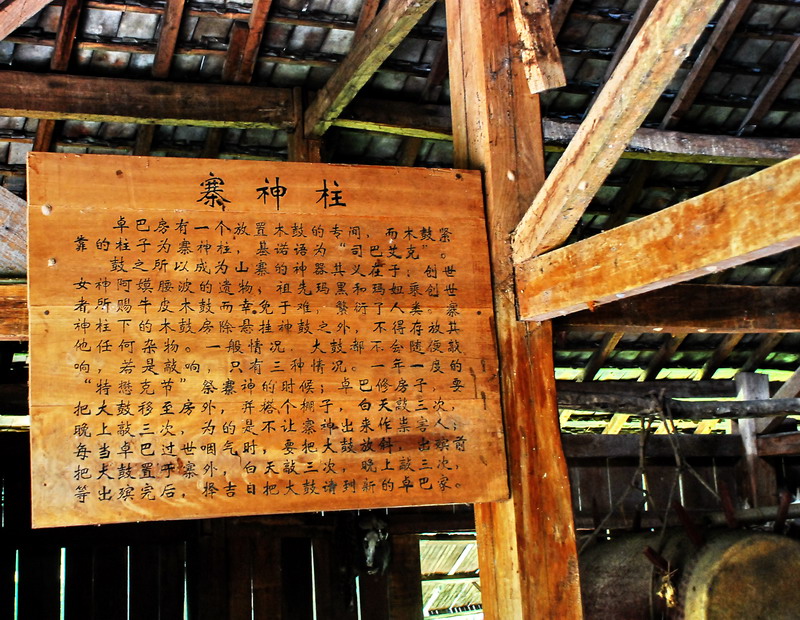 寨神柱
卓巴房有一个放置木鼓的专间，而木鼓紧
靠的柱子为寨神柱，基诺语为“司巴艾克”。
鼓之所以成为山寨的神器其义在于：创世
女神阿嫫腰波的遗物；祖先玛黑和玛妞乘创世
者所赐牛皮木鼓而幸免于难，繁衍了人类。寨
神柱下的木鼓房除悬挂神鼓之外，不得存放其
他任何杂物。一般情况，大鼓都不会随便敲
响，若是敲响，只有三种情况。一年一度的
“特懋克节”祭寨神的时候；卓巴修房子，要
把大鼓移至房外，并搭个棚子，白天敲三次，
晚上敲三次，为的是不让寨神出来作祟害人；
每当卓巴过世咽气时，要把大鼓放斜，出殡前
把大鼓置于寨外，白天敲三次，晚上敲三次，
等出殡完后，择吉日把大鼓请到新的卓巴家。